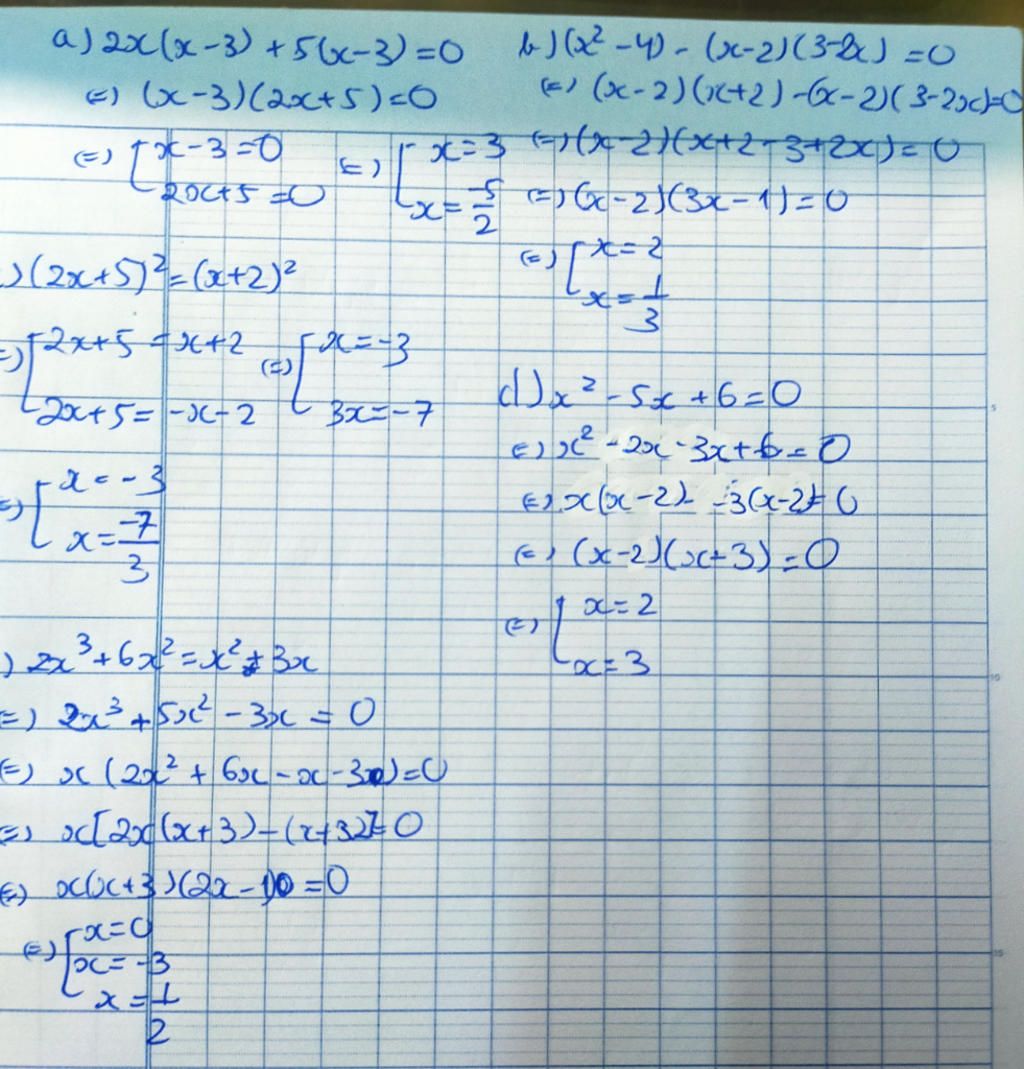 a) 2x(x-3) + 5(x-3) = 0
(=) (x-3)(2x+5) = 0
(=) [ x-3 = 0
2x+5 = 0
(=) [ x = 3
x = -5/2
b) (x² - 4) - (x-2)(3-2x) = 0
(=) (x-2)(x+2) - (x-2)(3-2x) = 0
(=) (x-2)(x+2-3+2x) = 0
(=) (x-2)(3x-1) = 0
(=) [ x = 2
x = 1/3
) (2x+5)² = (x+2)²
=) [ 2x+5 = x+2
2x+5 = -x-2
(=) [ x = -3
3x = -7
=) [ x = -3
x = -7/3
d) x² - 5x + 6 = 0
(=) x² - 2x - 3x + 6 = 0
(=) x(x-2) - -3(x-2) = 0
(=) (x-2)(x+3) = 0
(=) [ x = 2
x = 3
) 2x³ + 6x² = x² + 3x
=) 2x³ + 5x² - 3x = 0
(=) x(2x² + 6x - x - 3) = 0
=) x[2x(x+3) - (x+3)] = 0
(=) x(x+3)(2x-1) = 0
(=) [ x = 0
x = -3
x = 1/2